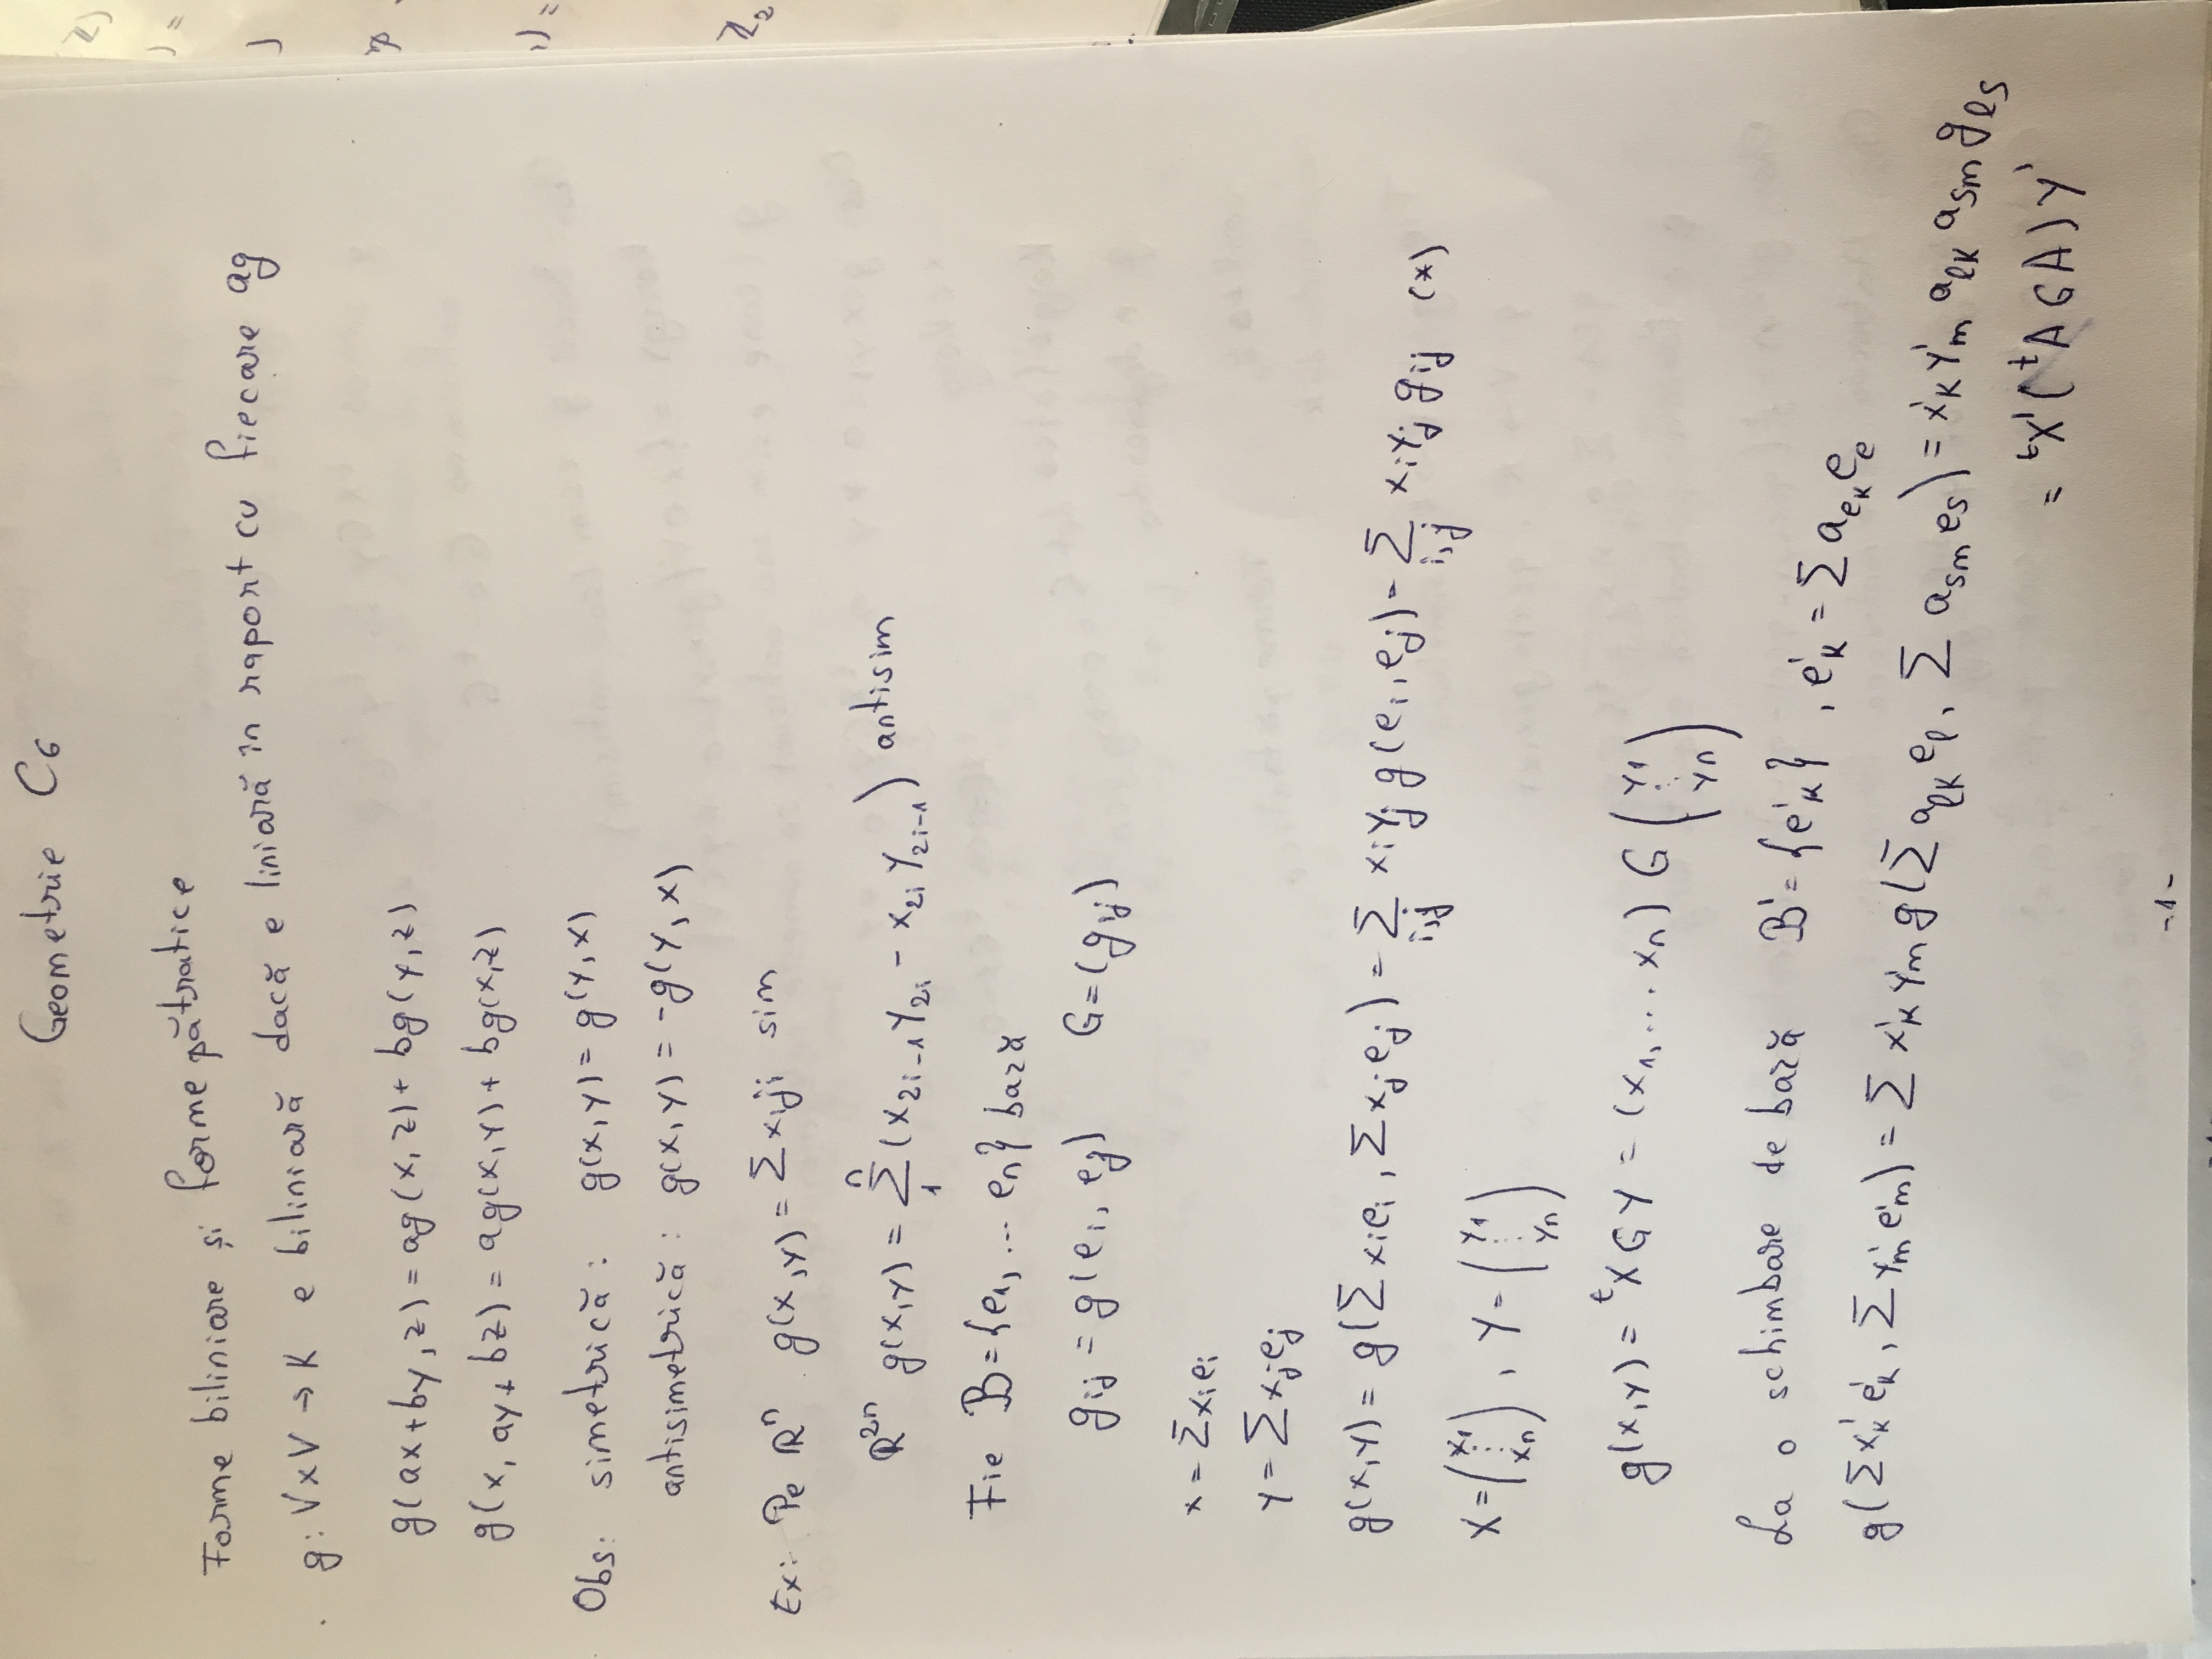 Geometrie C6
Forme biliniare și forme pătratice
g: V×V → K e biliniară dacă e liniară în raport cu fiecare ag
g(ax+by, z) = ag(x, z) + bg(y, z)
g(x, ay + bz) = ag(x, y) + bg(x, z)
Obs: simetrică: g(x, y) = g(y, x)
antisimetrică: g(x, y) = -g(y, x)
Ex: Pe ℝⁿ g(x, y) = Σ xᵢjᵢ sim
ℝ²ⁿ g(x, y) = Σ₁ⁿ (x_{2i-1} y_{2i} - x_{2i} y_{2i-1}) antisim
Fie B = {e₁, ... eₙ} bază
g_{ij} = g(e_i, e_j) G = (g_{ij})
x = Σ x_i e_i
y = Σ x_j e_j
g(x, y) = g(Σ x_i e_i, Σ x_j e_j) = Σ_{i,j} x_i y_j g(e_i, e_j) = Σ_{i,j} x_i y_j g_{ij} (*)
X = (x₁ ⋮ xₙ), Y = (y₁ ⋮ yₙ)
g(x, y) = ᵗX G Y = (x₁, ... xₙ) G (y₁ ⋮ yₙ)
La o schimbare de bază B' = {e'_k}, e'_k = Σ a_{ek} e_e
g(Σ x'_k e'_k, Σ y'_m e'_m) = Σ x'_k y'_m g(Σ a_{lk} e_l, Σ a_{sm} e_s) = x'_k y'_m a_{lk} a_{sm} g_{ls}
= ᵗX' (ᵗA G A) Y'
-1-